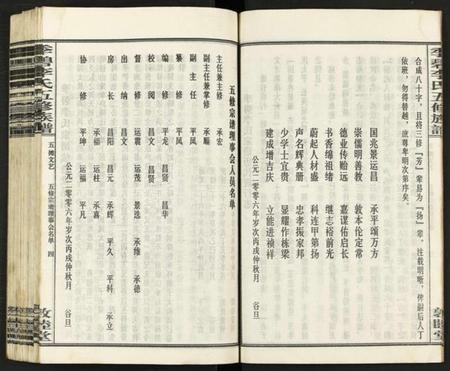 李氏五修族谱
合成八十字，且将三修「芳」辈易为「扬」辈，注载明晰，俾嗣后人丁
依班，勿得替越，庶尊卑明次第序矣。
国兆景运昌 承平颂万方
崇儒明善教 敦本伦定常
德业传贻远 嘉谋佑启长
书香绵祖绪 继志裕前光
蔚起人材盛 科连甲第扬
声名辉典册 忠孝振家邦
少学士宜贵 显耀作栋梁
建成增吉庆 立能进祯祥
公元二零零六年岁次丙戌仲秋月 谷旦
敦睦堂
五修宗谱理事会人员名单
主任兼主修 承宏
副主任兼掌修 承顺
副主任 平凤
纂修 平凤
编修 平龙 昌贤 昌华
校阅 昌文 昌贤
督修 运震 运茂 景选 承维 承德
出纳 昌文
房长 昌阳 昌元 承辉 平久 平科 承立
承福 运柱 承喜
协修 平坤 运福 平凡
公元二零零六年岁次丙戌仲秋月 谷旦
李氏五修族谱
五修艺文 五修宗谱理事会名单 四
敦睦堂